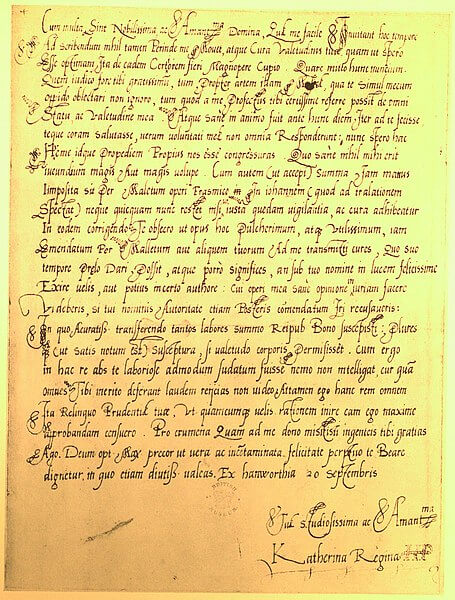 Cum multa, Sint Nobilissima ac Amantissima Domina, Quæ me facile Invitant hoc tempore
Ad scribendum nihil tamen Perinde me Movet, atque Cura Valetudinis tuæ, quam ut spero
Esse optimam, Ita de eadem Certiorem fieri Magnopere Cupio. Quare mitto hunc nuncium
Quem iudico fore tibi gratissimum, tum Propter artem illam Musicæ, qua te Simul mecum
oppido oblectari non ignoro, tum quod a me Profectus tibi certissime referre possit de omni
Statu, ac Valetudine mea. Atque sane in animo fuit ante hunc diem, Iter ad te fecisse
teque coram salutasse, verum voluntati meæ non omnia Responderunt; nunc spero hac
Hieme idque Propediem Propius nos esse congressuras. Quo sane mihi nihil erit
iucundum magis Aut magis volupe. Cum autem (ut accepi) summa Iam manus
Imposita sit Per Maletum operi Erasmico in Iohannem (quod ad tralationem
Spectat) neque quicquam nunc restet nisi, iusta quedam vigilantia, ac cura adhibeatur
In eodem corrigendo, Te obsecro ut opus hoc Pulcherimum, atque Vtilissimum, iam
Emendatum Per Maletum aut aliquem tuorum Ad me transmitti cures, Quo suo
tempore Prelo Dari, Possit, atque porro significes, an sub tuo nomine in lucem felicissime
Exire velis, aut potius incerto authore: Cui operi mea sane opinione iniuriam facere
Videberis, si tui nominis Autoritate etiam Posteris comendatum Iri recusaveris:
In quo Accuratissime transferendo tantos labores summo Reipub Bono suscepisti; Plures
(Cut satis notum est) Susceptura, si valetudo corporis Permisisset. Cum ergo
in hac re abs te laboriose admodum sudatum fuisse nemo non intelligat cur quam
omnes Tibi merito deferant laudem reiicias non video Attamen ego hanc rem omnem
Ita Relinquo Prudentiæ tuæ Vt quamcumque velis rationem inire eam ego maxime
approbandam censuero. Pro crumena Quam ad me dono misisti ingenteis tibi gratias
Ago. Deum opt Max precor ut vera ac incontaminata, felicitate perpetuo te Beare
dignetur, in quo etiam diutissime valeas, Ex hanworthia 20 Septembris
Tui Studiosissima ac Amantma
Katherina Regina KP